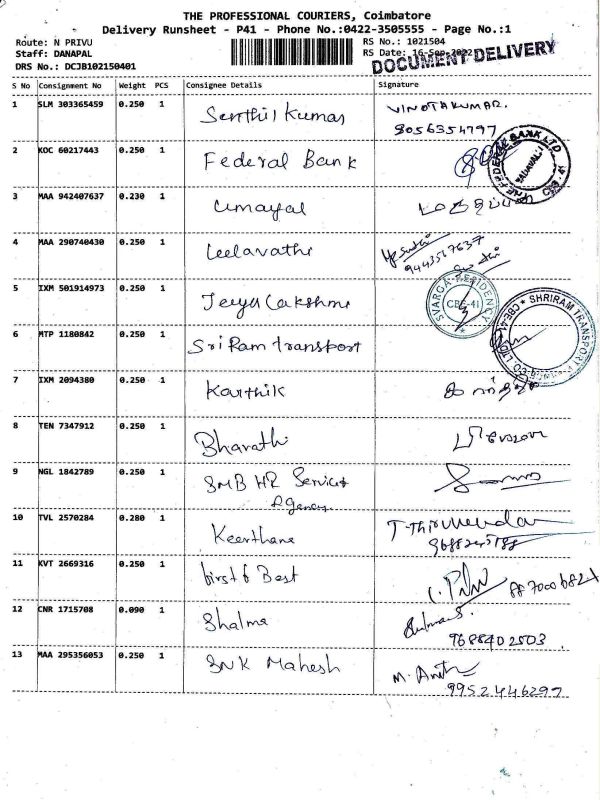 THE PROFESSIONAL COURIERS, Coimbatore
Delivery Runsheet - P41 - Phone No.:0422-3505555 - Page No.:1
Route: N PRIVU RS No.: 1021504
Staff: DANAPAL RS Date: 16-Sep-2022
DRS No.: DCJB102150401 DOCUMENT DELIVERY
S No Consignment No Weight PCS Consignee Details Signature
1 SLM 303365459 0.250 1 Senthil Kumar VINOTAKUMAR.
8056354797
2 KOC 60217443 0.250 1 Federal Bank
THE FEDERAL BANK LTD.
VADAVALLI
3 MAA 942407637 0.230 1 Umayal
4 MAA 290740430 0.250 1 Leelavathi
9443567637
5 IXM 501914973 0.250 1 Jeyalakshmi
SVARGA RESIDENCY
CBE-41
6 MTP 1180842 0.250 1 Sri Ram transport
SHRIRAM TRANSPORT
CBE-41
7 IXM 2094380 0.250 1 Karthik கார்த்திக்
8 TEN 7347912 0.250 1 Bharathi
9 NGL 1842789 0.250 1 SMB HR Services
Agency
10 TVL 2570284 0.280 1 Keerthana
9688245188
11 KVT 2669316 0.250 1 birst6 Best
12 CNR 1715708 0.090 1 Shalma
9688402503
13 MAA 295356053 0.250 1 SNK Mahesh
9952446297